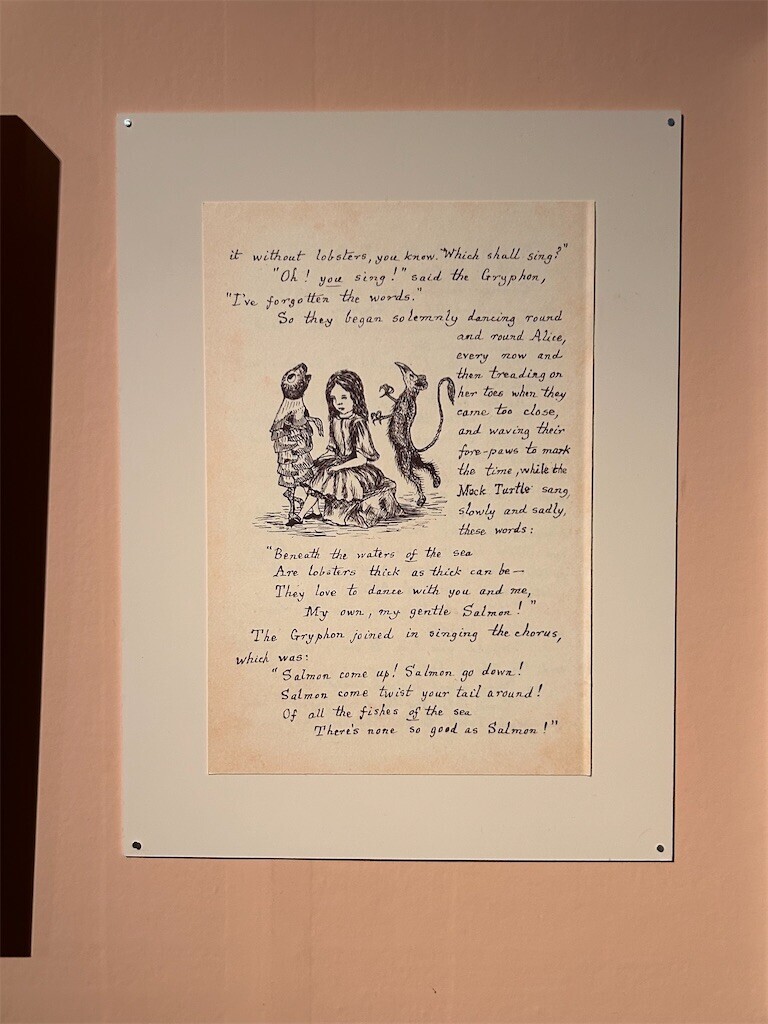 it without lobsters, you know. Which shall sing?"
"Oh! you sing!" said the Gryphon,
"I've forgotten the words."
So they began solemnly dancing round
and round Alice,
every now and
then treading on
her toes when they
came too close,
and waving their
fore-paws to mark
the time, while the
Mock Turtle sang,
slowly and sadly,
these words:
"Beneath the waters of the sea
Are lobsters thick as thick can be—
They love to dance with you and me,
My own, my gentle Salmon!"
The Gryphon joined in singing the chorus,
which was:
"Salmon come up! Salmon go down!
Salmon come twist your tail around!
Of all the fishes of the sea
There's none so good as Salmon!"